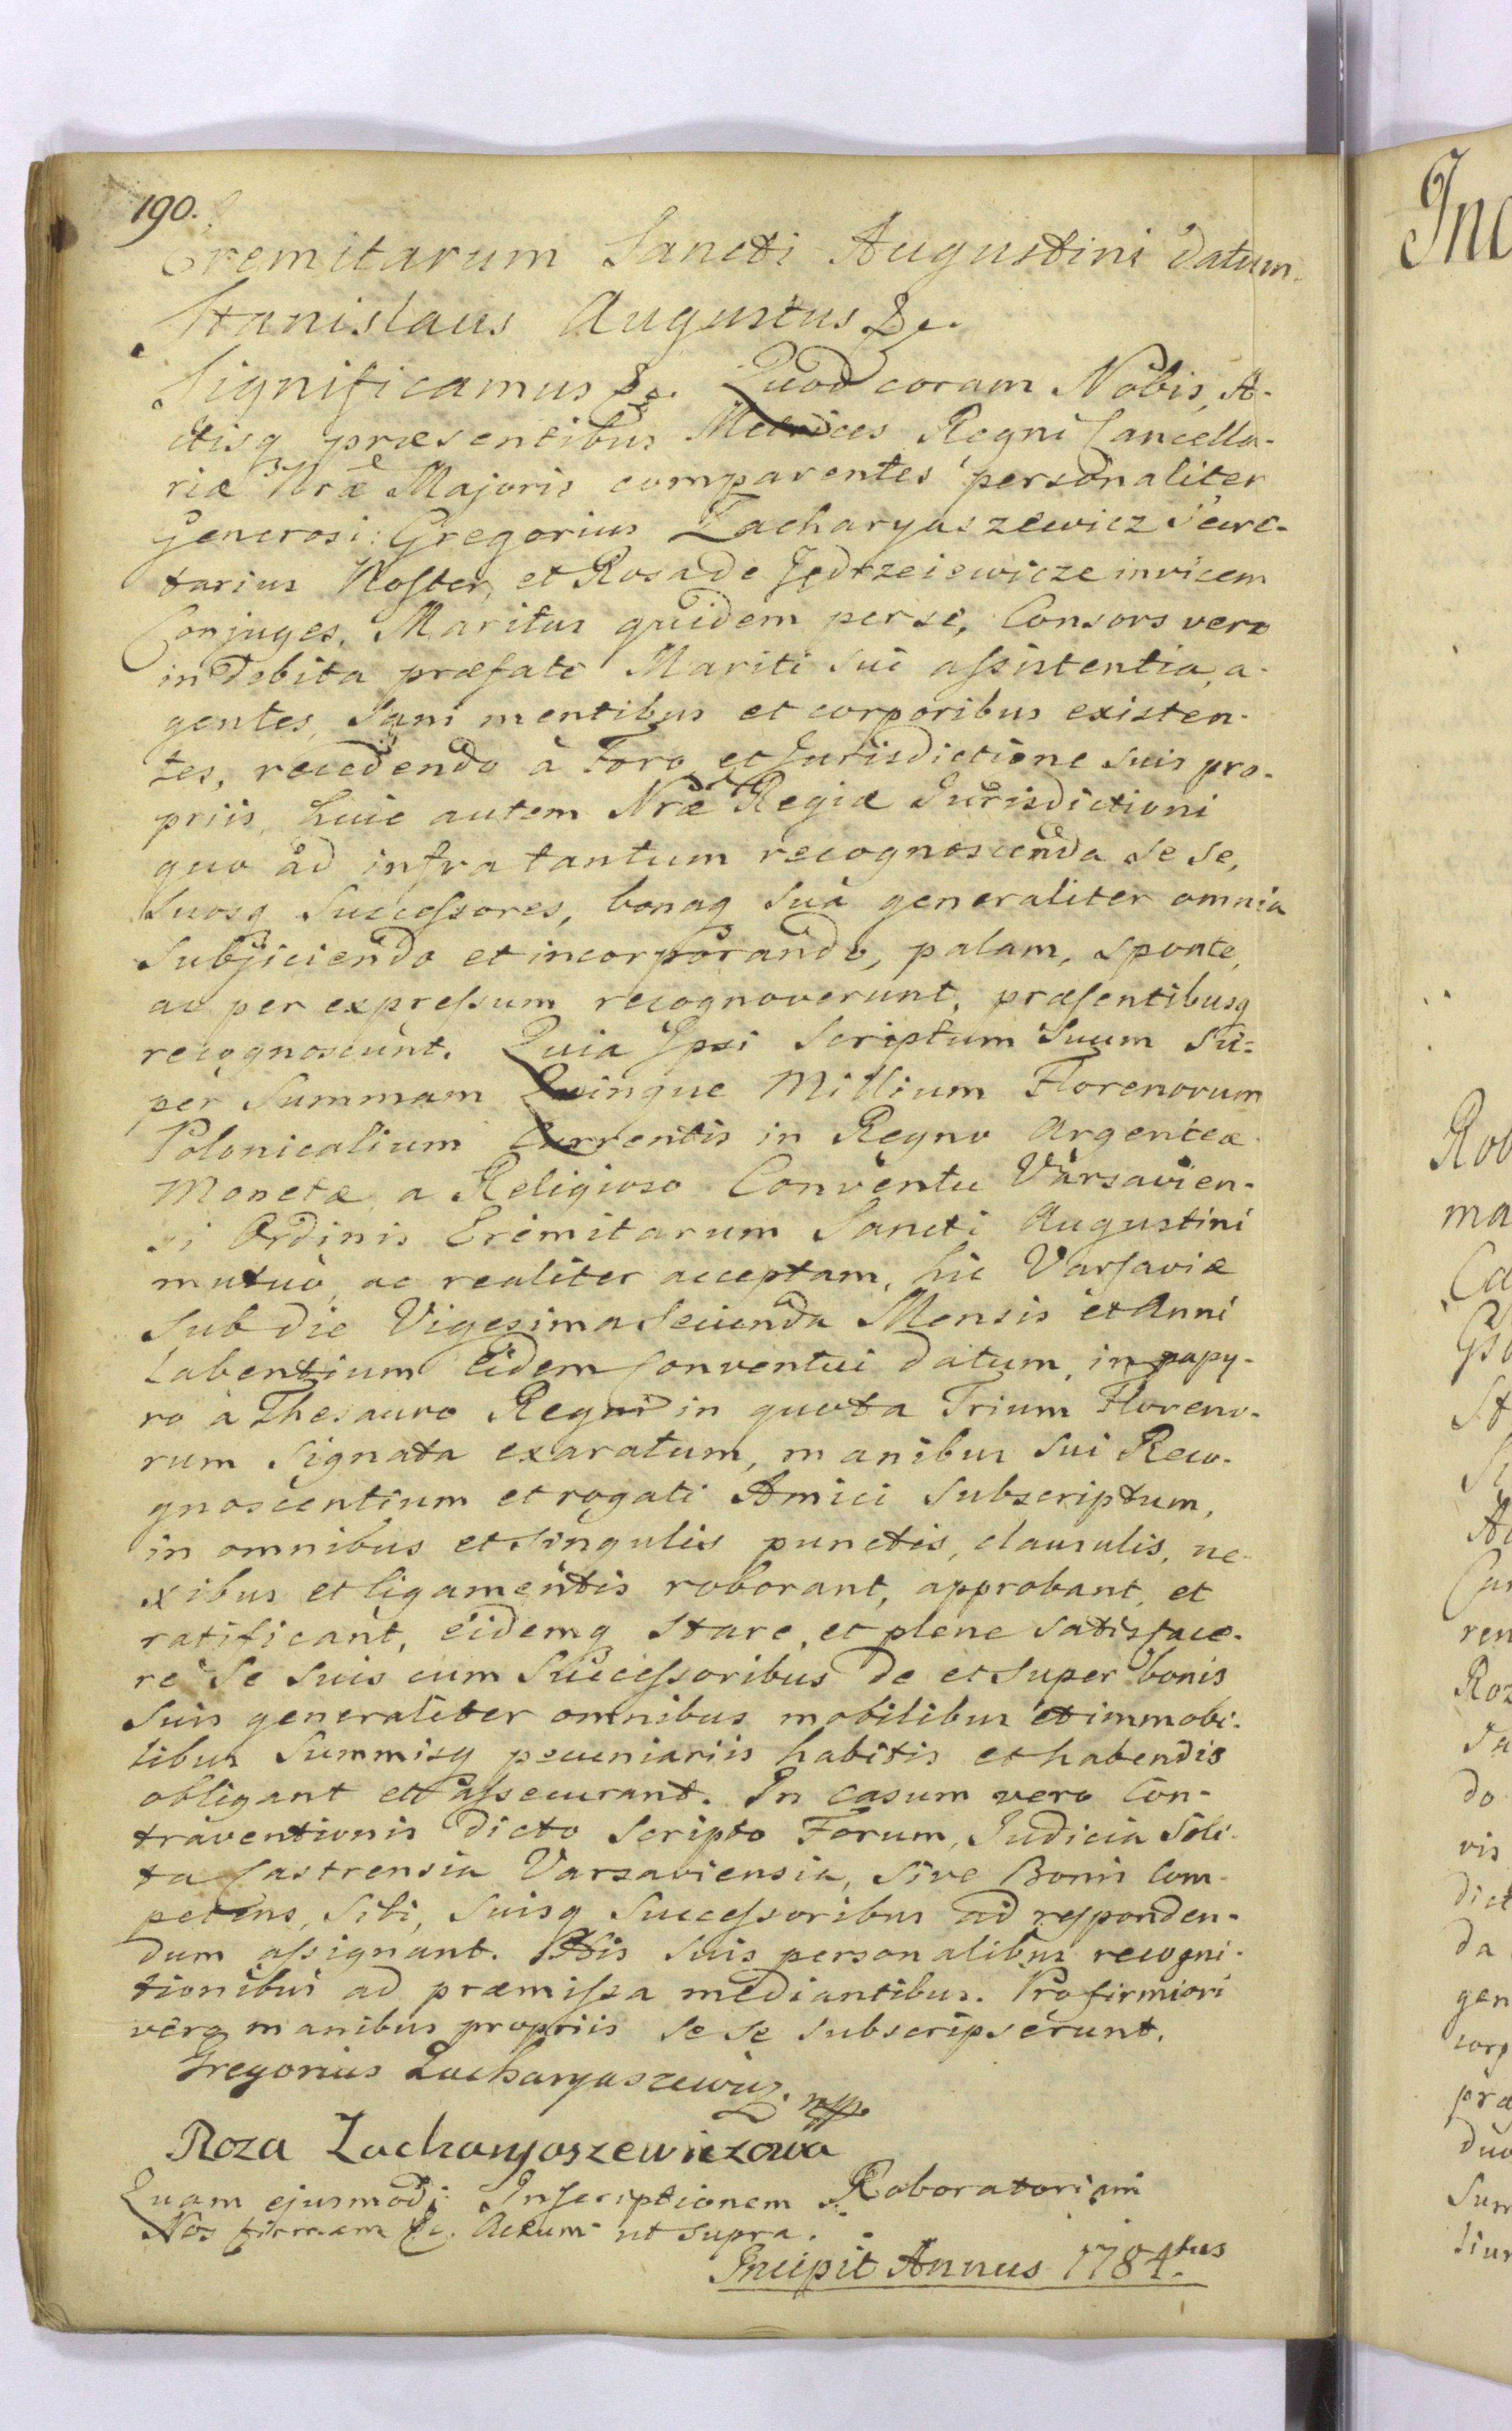 190.
Eremitarum Sancti Augustini datum.
Stanislaus Augustus &c.
Significamus &c. Quod coram Nobis, A-
ctisq præsentibus Metrices Regni Cancella-
riæ Nræ Majoris comparentes personaliter
Generosi: Gregorius Zacharyaszewicz Secre-
tarius Noster, et Rosa de Jędrzeiewicze invicem
Conjuges, Maritus quidem per se, Consors vero
in debita præfati Mariti sui assistentia, a-
gentes, Sani mentibus et corporibus existen-
tes, recedendo à Foro et Jurisdictione suis pro-
priis, huic autem Nræ Regiæ Jurisdictioni
quo ad infra tantum recognoscenda se se,
suosq Successores, bonaq sua generaliter omnia
subjiciendo et incorporando, palam, sponte,
ac per expressum recognoverunt, præsentibusq
recognoscunt. Quia Ipsi Scriptum Suum su-
per Summam Quinque Millium Florenorum
Polonicalium Currentis in Regno Argenteæ
Monetæ a Religioso Conventu Varsavien-
si Ordinis Eremitarum Sancti Augustini
mutuò, ac realiter acceptam, hic Varsaviæ
sub die Vigesima Secunda Mensis et Anni
Labentium eidem Conventui datum, in papy-
ro à Thesauro Regni in quota Trium Floreno-
rum Signata exaratum, manibus sui Reco-
gnoscentium et rogati Amici subscriptum,
in omnibus et singulis punctis, clausulis, ne-
xibus et ligamentis roborant, approbant, et
ratificant, eidemq stare, et plene satisface-
re se suis cum Successoribus de et super bonis
suis generaliter omnibus mobilibus et immobi-
libus Summisq pecuniariis habitis et habendis
obligant et assecurant. In casum vero Con-
traventionis dicto Scripto Forum, Judicia Soli-
ta Castrensia Varsaviensia, sive Bonis Com-
petens, sibi, suisq Successoribus ad responden-
dum assignant. His suis personalibus recogni-
tionibus ad præmissa mediantibus. Pro firmiori
verq manibus propriis se se subscripserunt.
Gregorius Zacharyaszewicz. mpp.
Roza Zacharyaszewiczowa
Quam ejusmodi Inscriptionem Roboratoriam
Nos firmam &c. Actum ut supra.
Incipit Annus 1784.tus